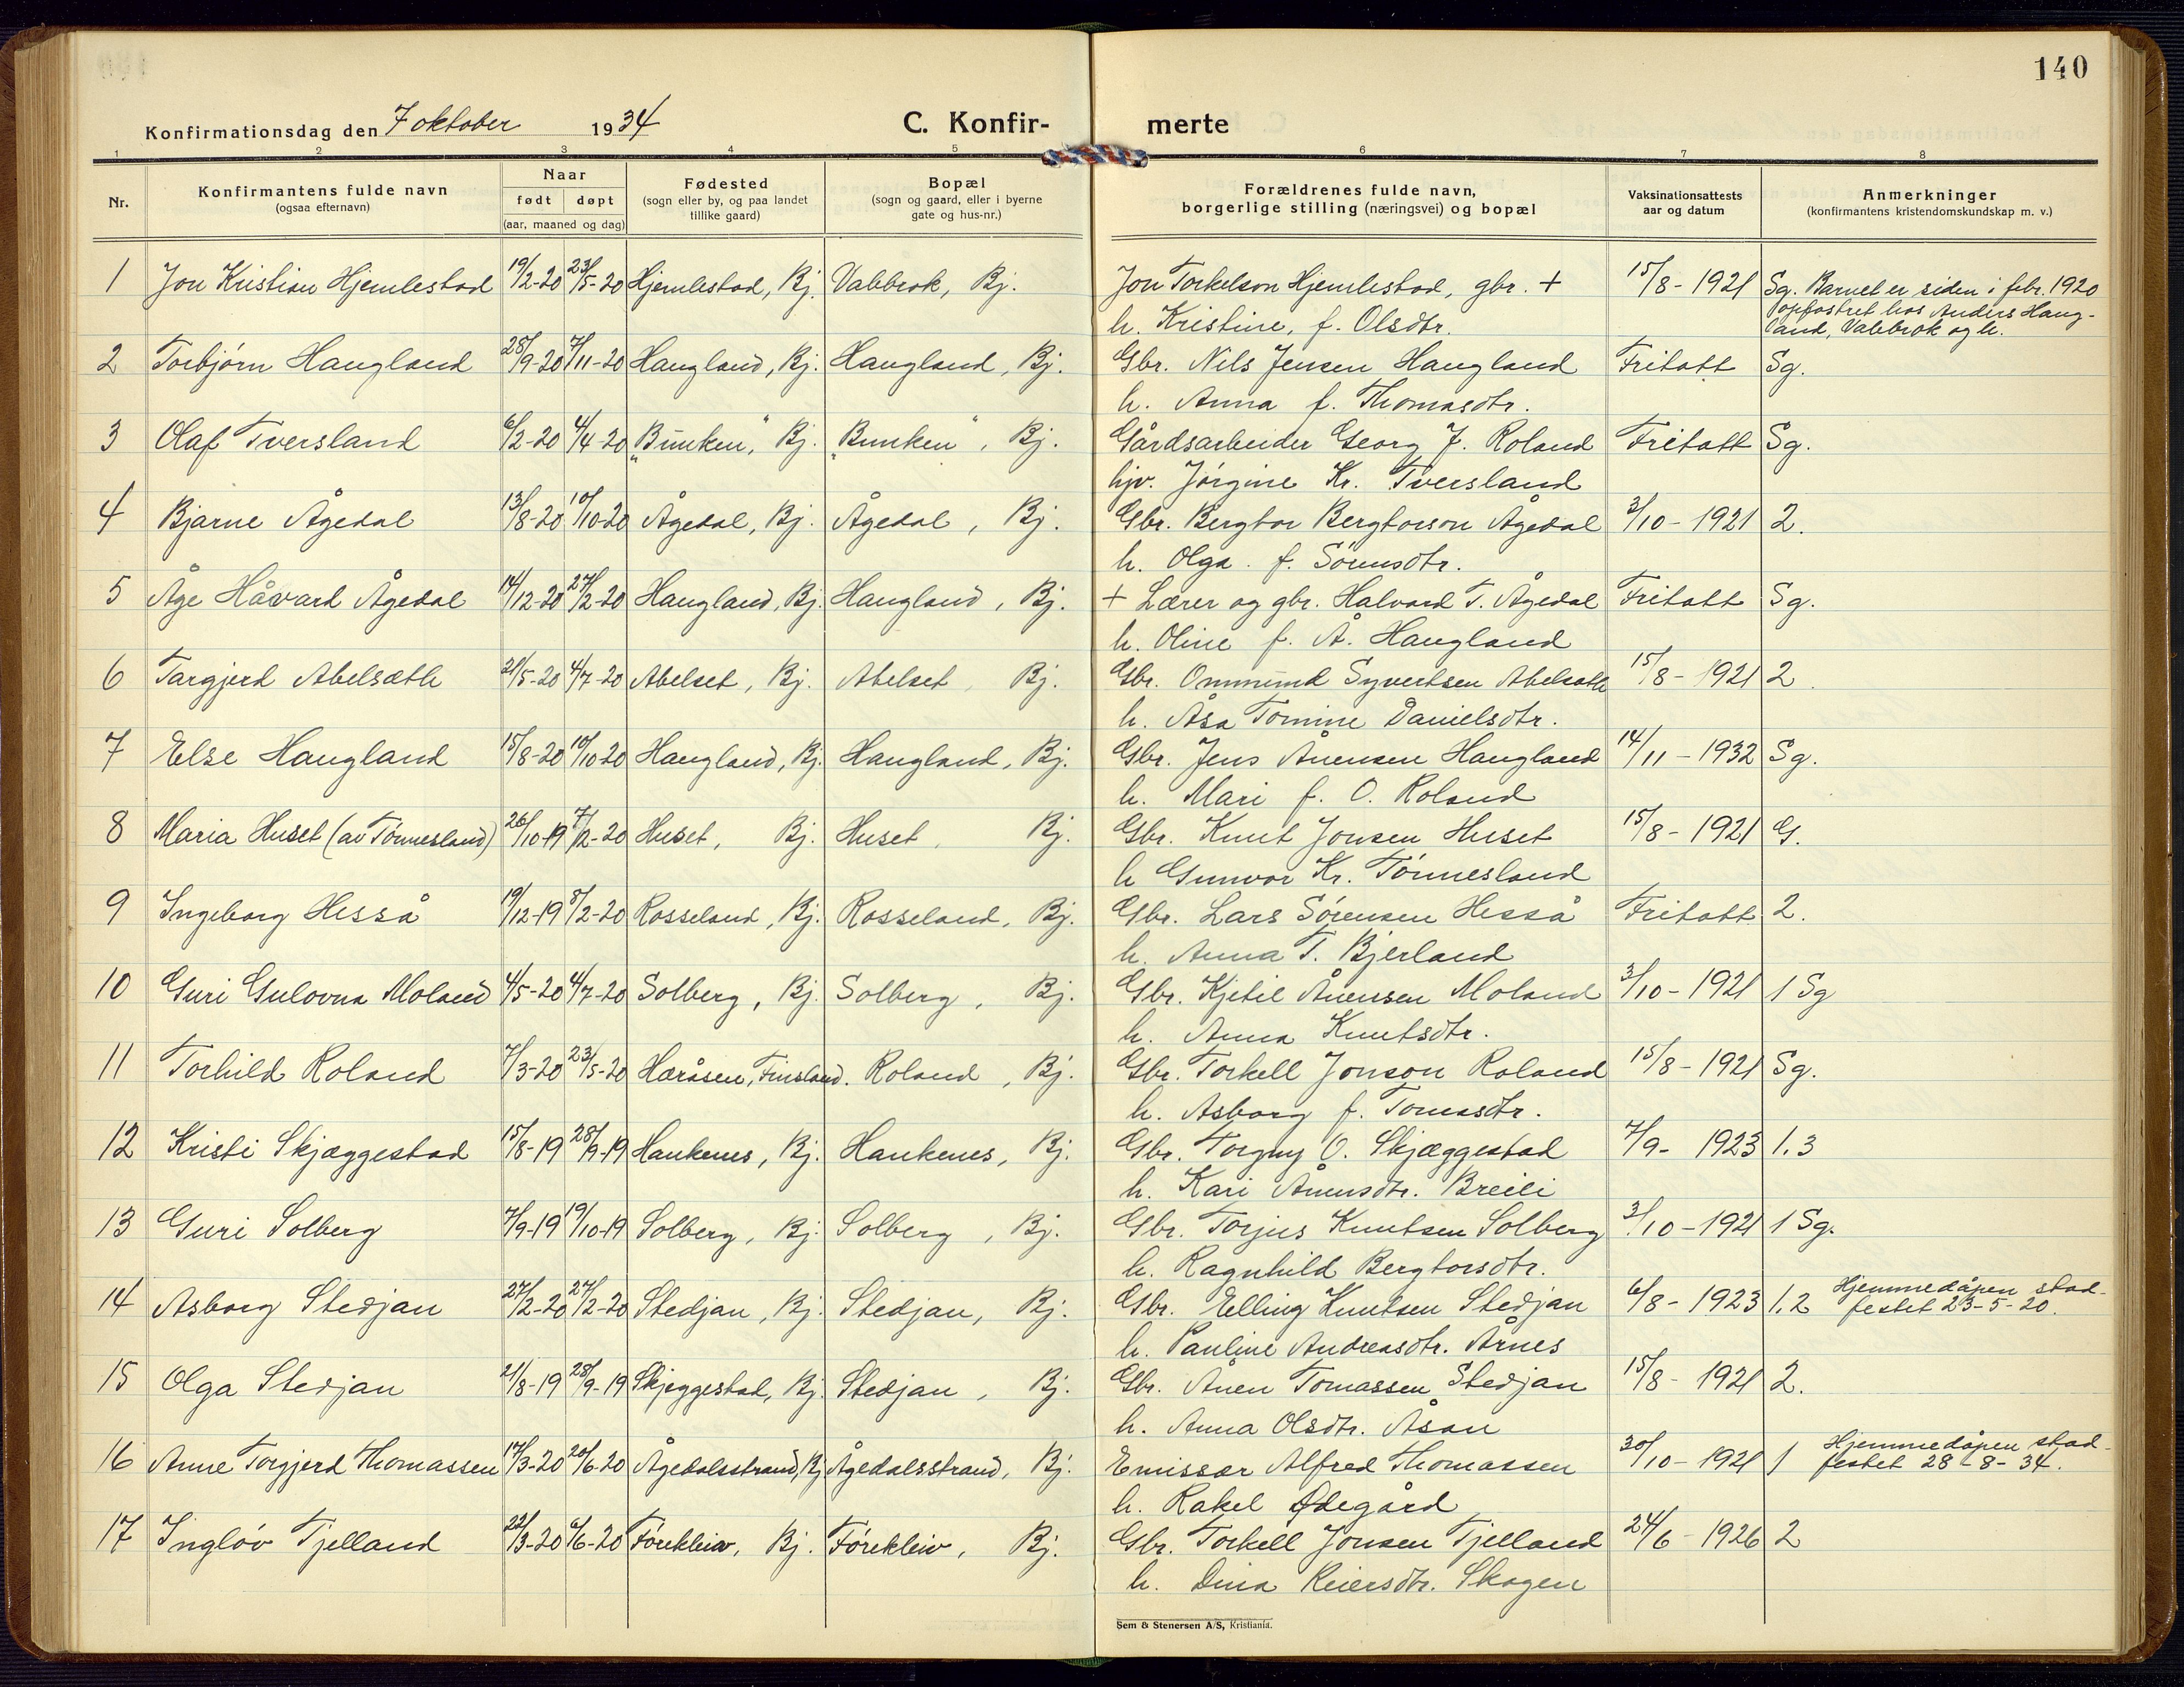 140
Konfirmationsdag den 7 oktober 1934
C. Konfirmerte
1 2 3 4 5 6 7 8
Nr. | Konfirmantens fulde navn (ogsaa efternavn) | Naar født døpt (aar, maaned og dag) | Fødested (sogn eller by, og paa landet tillike gaard) | Bopæl (sogn og gaard, eller i byerne gate og hus-nr.) | Forældrenes fulde navn, borgerlige stilling (næringsvei) og bopæl | Vaksinationsattests aar og datum | Anmerkninger (konfirmantens kristendomskundskap m. v.)
1 Jon Kristian Hjemlestad 19/2-20 23/5-20 Hjemlestad, Bj. Valebrok, Bj. Jon Torkelson Hjemlestad, gbr. + 15/8-1921 Sg. Barnet er siden i febr. 1920
h. Kristine, f. Olsdtr. oppfostret hos Anders Haug-
land, Valebrok og h.
2 Torbjørn Haugland 28/9-20 7/11-20 Haugland, Bj. Haugland, Bj. Gbr. Nils Jensen Haugland Fritatt Sg.
h. Anna f. Thomasdtr.
3 Olaf Tversland 6/2-20 4/4-20 „Bunken", Bj. „Bunken", Bj. Gårdsarbeider Georg J. Roland Fritatt Sg.
hjv. Jørgine Kr. Tversland
4 Bjarne Ågedal 13/8-20 10/10-20 Ågedal, Bj. Ågedal, Bj. Gbr. Bergtor Bergtorson Ågedal 3/10-1921 2.
h. Olga. f. Sørensdtr.
5 Åge Håvard Ågedal 14/12-20 27/2-20 Haugland, Bj. Haugland, Bj. + Lærer og gbr. Halvard T. Ågedal Fritatt Sg.
h. Oline f. Å. Haugland
6 Targjerd Abelsæth 21/5-20 4/7-20 Abelset, Bj. Abelset, Bj. Gbr. Ommund Syvertsen Abelsæth 15/8-1921 2.
h. Åsa Tomine Danielsdtr.
7 Else Haugland 15/8-20 10/10-20 Haugland, Bj. Haugland, Bj. Gbr. Jens Ånensen Haugland 14/11-1932 Sg.
h. Mari f. O. Roland
8 Maria Huset (av Tønnesland) 26/10-19 7/12-20 Huset, Bj. Huset, Bj. Gbr. Knut Jonsen Huset 15/8-1921 G.
h Gunvor Kr. Tønnesland
9 Ingeborg Heså 19/12-19 8/2-20 Rosseland, Bj. Rosseland, Bj. Gbr. Lars Sørensen Hesså Fritatt 2.
h. Anna T. Bjerland
10 Guri Gulovna Moland 4/5-20 4/7-20 Solberg, Bj. Solberg, Bj. Gbr. Kjetil Ånensen Moland 3/10-1921 1 Sg
h. Anna Knutsdtr.
11 Torhild Roland 7/3-20 23/5-20 Høråsen, Finsland. Roland, Bj. Gbr. Torkell Jonson Roland 15/8-1921 Sg.
h. Asborg f. Tomasdtr.
12 Kristi Skjæggestad 15/8-19 28/9-19 Haukenes, Bj. Haukenes, Bj. Gbr. Torgny O. Skjæggestad 7/9-1923 1.3
h. Kari Ånensdtr. Breili
13 Guri Solberg 7/9-19 19/10-19 Solberg, Bj. Solberg, Bj. Gbr. Torjus Knutsen Solberg 3/10-1921 1 Sg.
h. Ragnhild Bergtorsdtr.
14 Asborg Stedjan 27/2-20 27/2-20 Stedjan, Bj. Stedjan, Bj. Gbr. Elling Knutsen Stedjan 6/8-1923 1.2 Hjemmedåpen stad-
festet 23-5-20.
h. Pauline Andreasdtr. Årnes
15 Olga Stedjan 21/8-19 28/9-19 Skjeggestad, Bj. Stedjan, Bj. Gbr. Ånen Tomassen Stedjan 15/8-1921 2.
h. Anna Olsdtr. Åsan
16 Anne Torgjerd Thomassen 17/3-20 20/6-20 Ågedalsstrand, Bj Ågedalsstrand, Bj. Emissær Alfred Thomassen 30/10-1921 1 Hjemmedåpen stad-
festet 28-8-34.
h. Rakel Ødegård
17 Ingløv Tjelland 22/3-20 6/6-20 Førekleiv, Bj. Førekleiv, Bj. Gbr. Torkell Jonsen Tjelland 24/6-1926 2
h. Dina Reiersdtr. Skogen
Sem & Stenersen A/S, Kristiania.